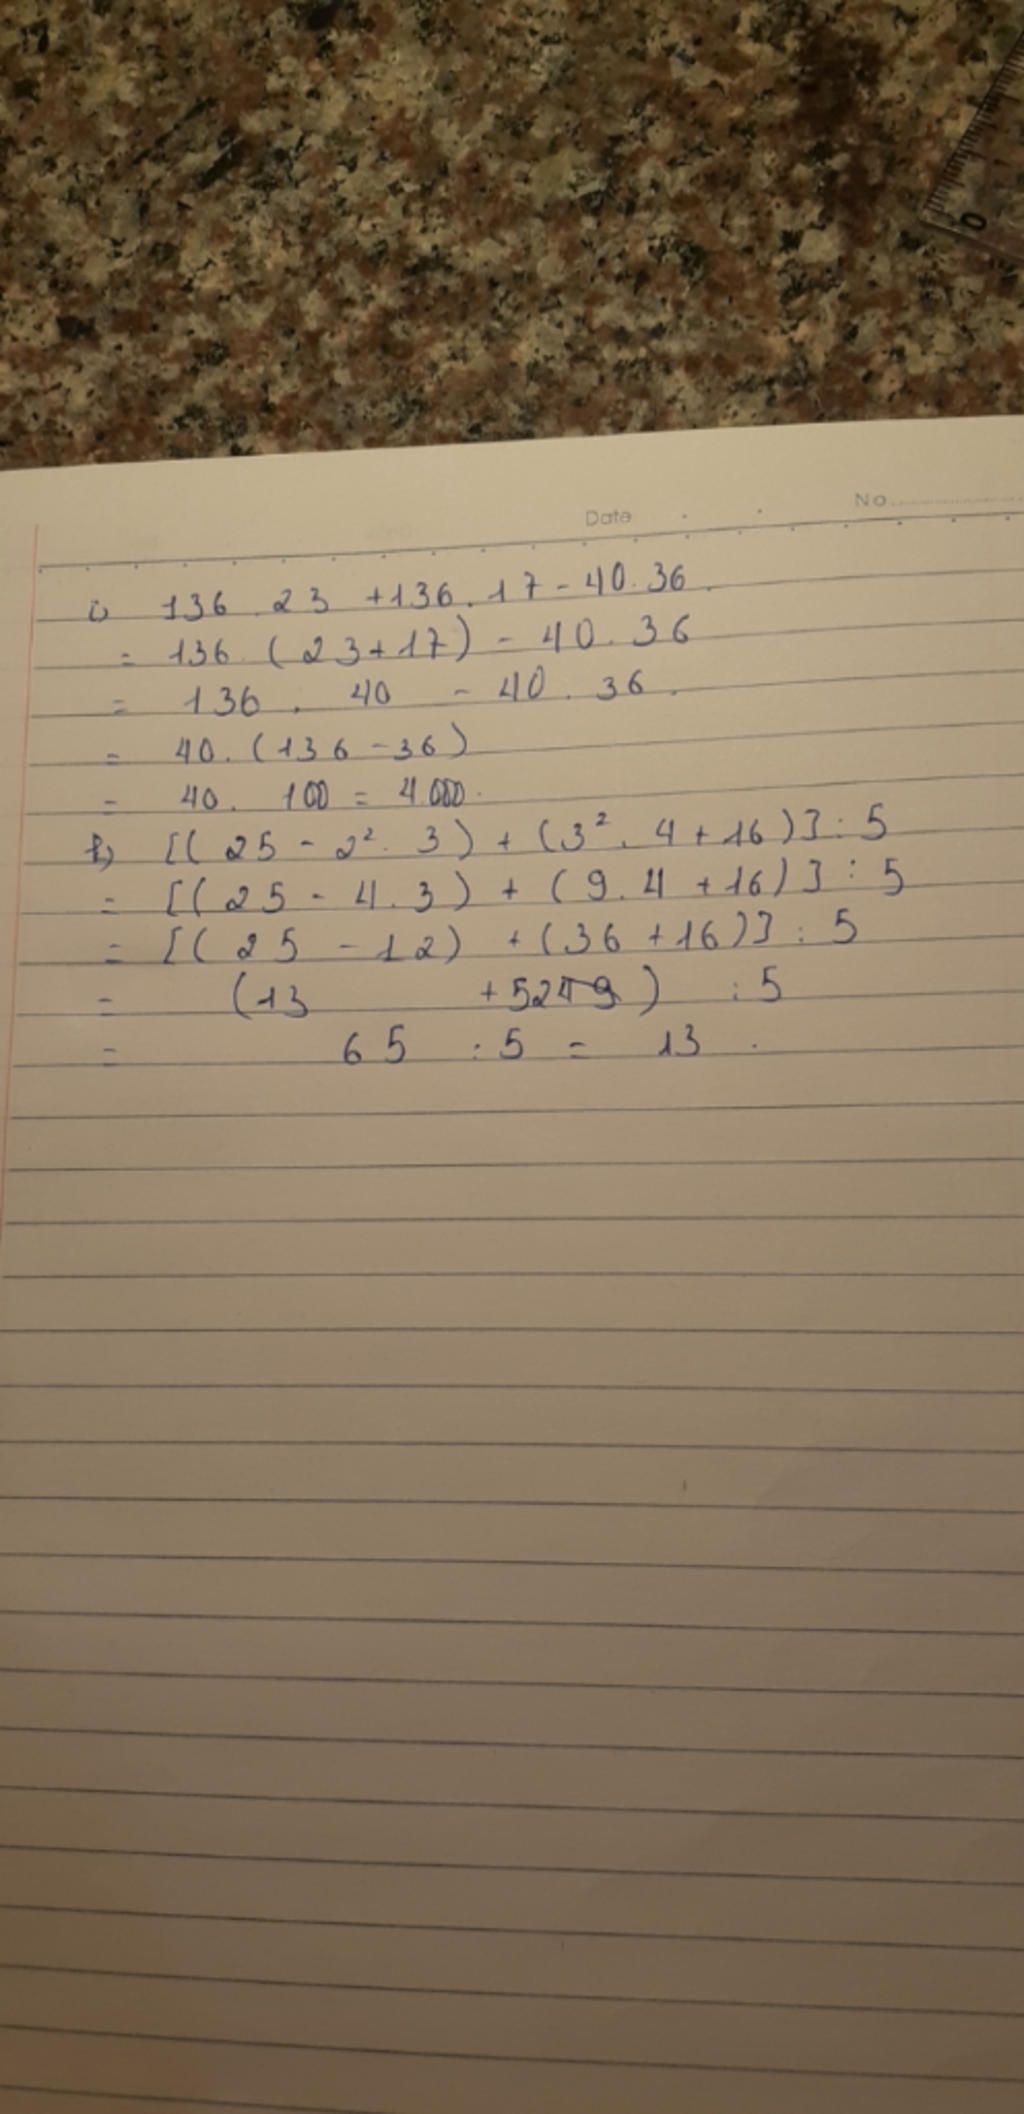 Date
No
136.23 + 136.17 - 40.36.
= 136.(23+17) - 40.36
= 136. 40 - 40.36.
= 40.(136-36)
= 40. 100 = 4.000.
[(25 - 2². 3) + (3². 4 + 16)] : 5
= [(25 - 4.3) + (9.4 + 16)] : 5
= [(25 - 12) + (36 + 16)] : 5
= (13 + 52) : 5
= 65 : 5 = 13.
0